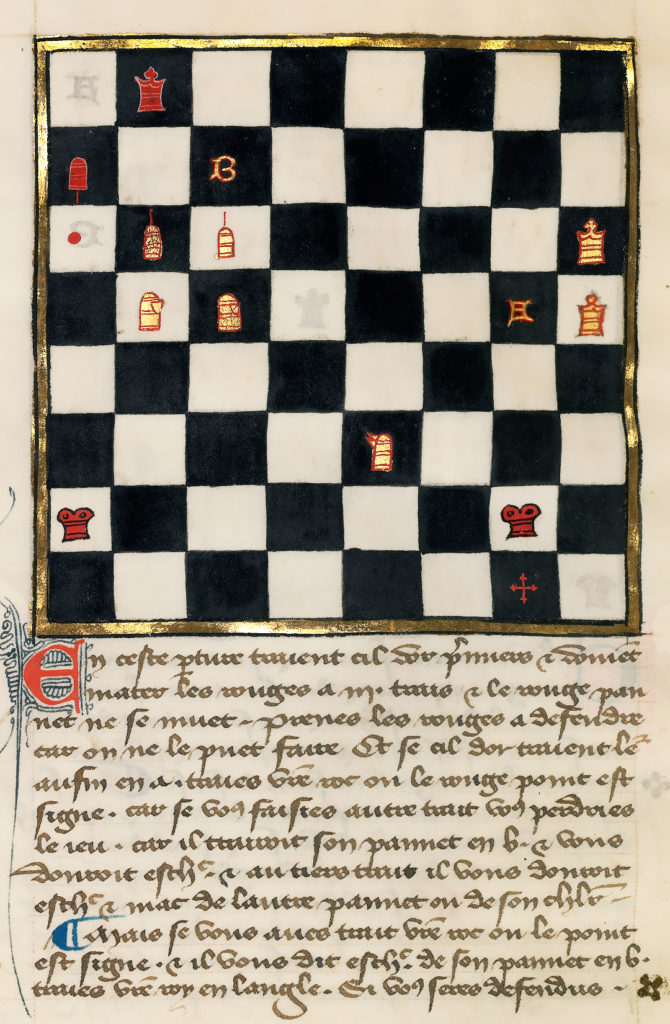 B
A
En ceste p̄ture traient cil dor p̄miers & doiuēt
mater les rouges a iij. trais & le rouge pau
net ne se muet. Prenes les rouges a defendre
car on ne le puet faire. Et se cil dor traient lē
aufin en A. traies vr̄e roc ou le rouge point est
signe. car se voꝰ faisies autre trait voꝰ perdries
le ieu. car il trairoit son paunet en b. & vous
donroit eschᶜ. & au tiers trait il vous donroit
eschᶜ & mat de lautre paunet ou de son chlr̄
Mais se vous aues trait vr̄e roc ou le point
est signe. & il vous dit eschᶜ. de son paunet en b.
traies vr̄e roy en langle. Si voꝰ seres defendus.